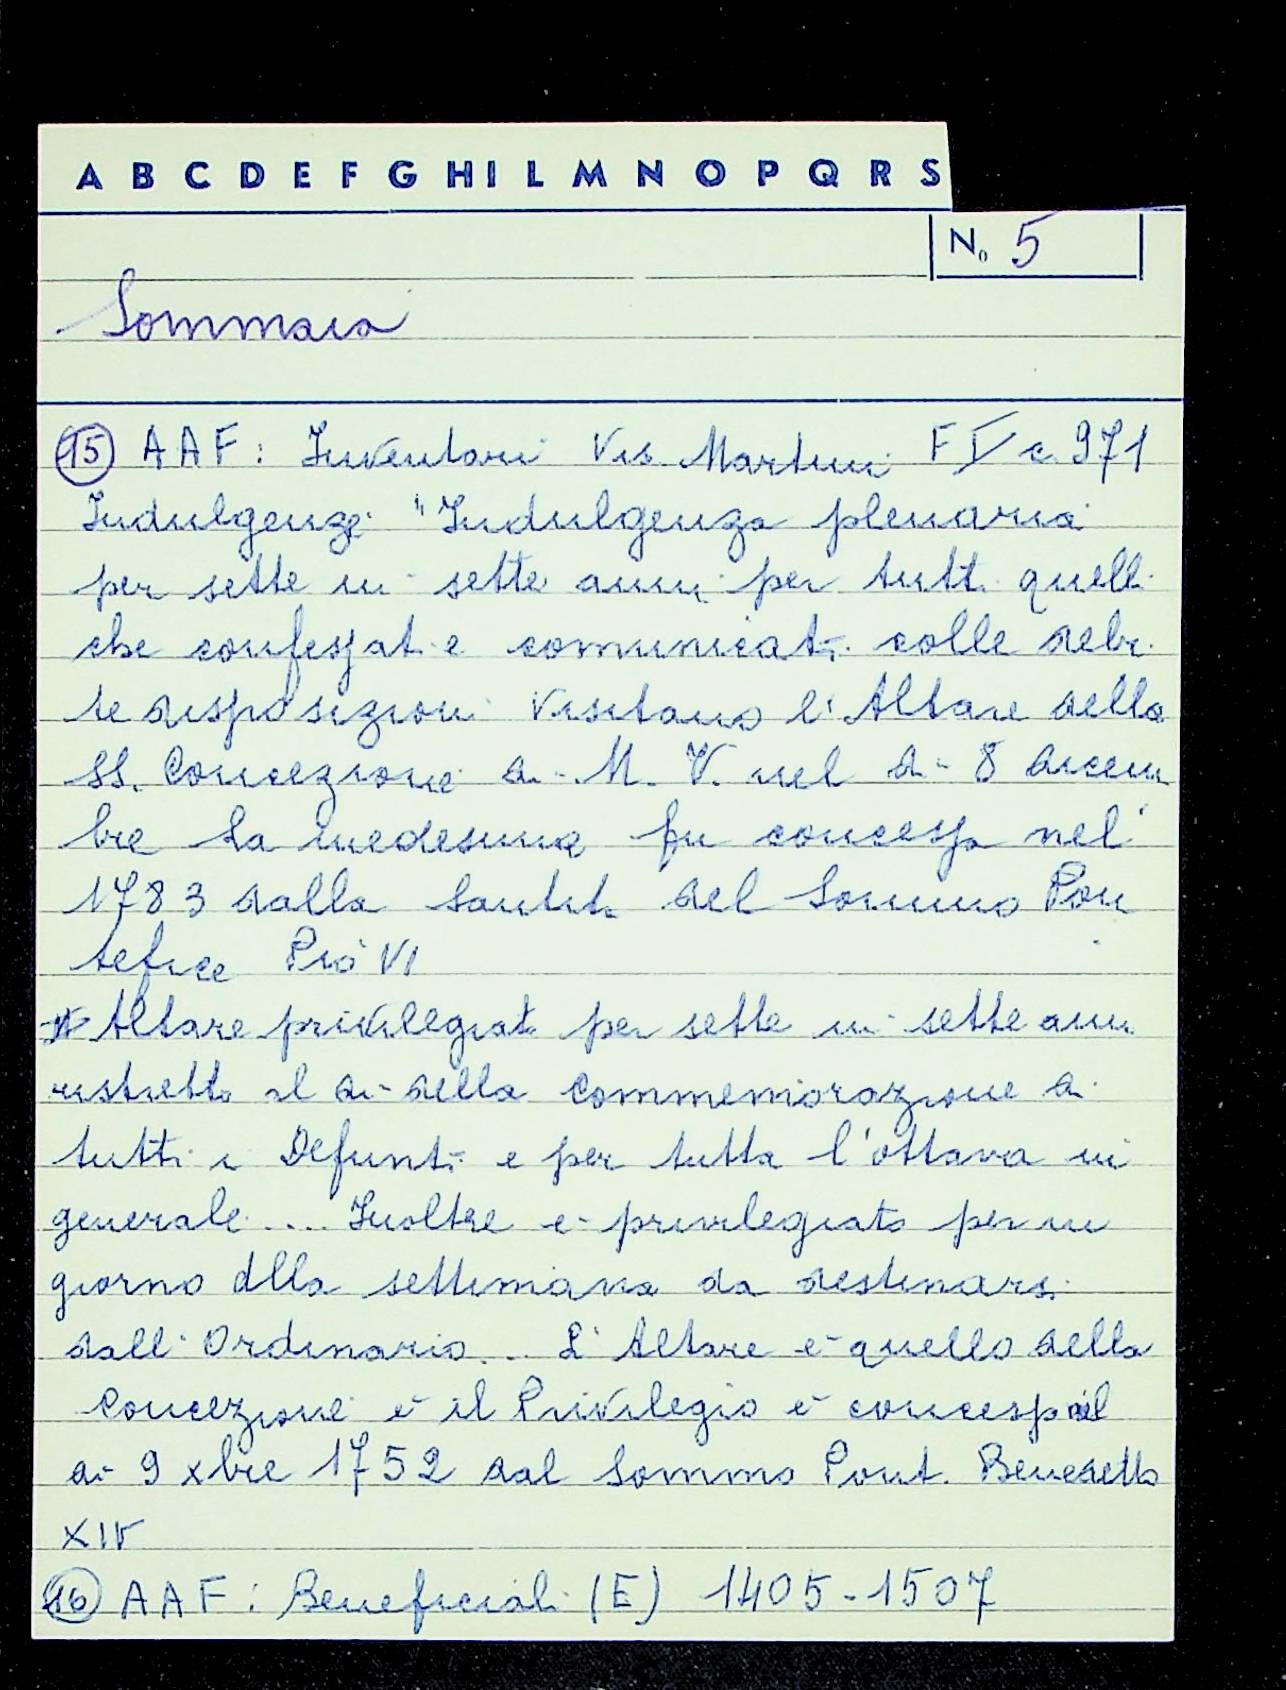 A B C D E F G H I L M N O P Q R S
No 5
Sommaia
15 AAF: Inventari Vis. Martini F V c. 971
Indulgenze "Indulgenza plenaria
per sette in sette anni per tutti quelli
che confessati e comunicati colle debi
te disposizioni visitano l'Altare della
SS. Concezione di M. V. nel dì 8 dicem
bre la medesima fu concessa nel
1783 dalla Santità del Sommo Pon
tefice Pio VI
Altare privilegiato per sette in sette anni
ristretto al dì della Commemorazione di
tutti i Defunti e per tutta l'ottava in
generale .... Inoltre è privilegiato per un
giorno dlla settimana da destinarsi
dall'Ordinario... L'Altare è quello della
Concezione e il Privilegio è concesso il
dì 9 xbre 1752 dal Sommo Pont. Benedetto
XIV
16 AAF: Beneficiali (E) 1405-1507